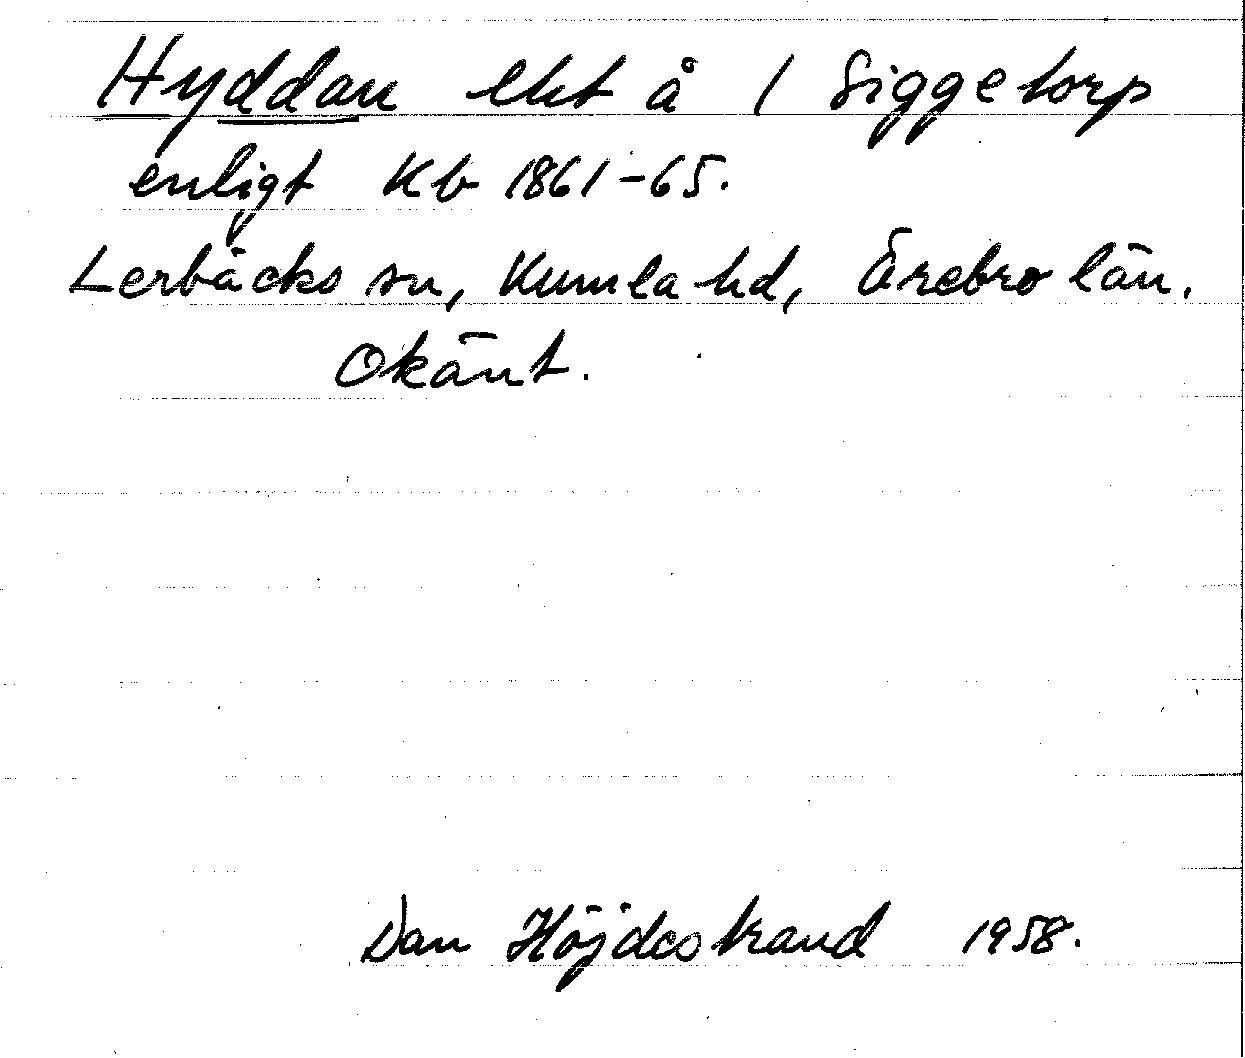 Hyddan lht å / Siggetorp
enligt Kb 1861-65.
Lerbäcks sn, Kumla hd, Örebro län.
Okänt.
Dan Höjdestrand 1958.